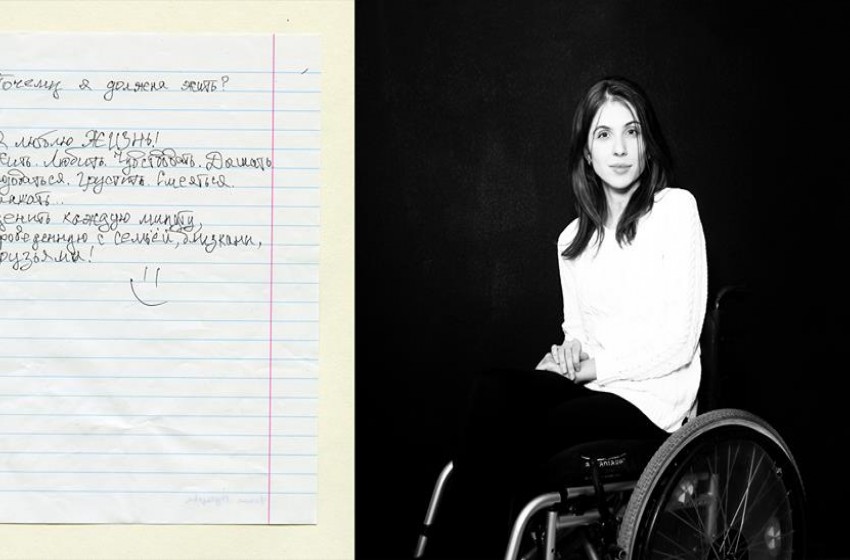 Почему я должна жить?
Я люблю ЖИЗНЬ!
жить. Любить. Чувствовать. Дышать.
адоваться. Грустить. Смеяться.
лакать...
ценить каждую минуту,
проведенную с семьёй, близкими,
рузьями!